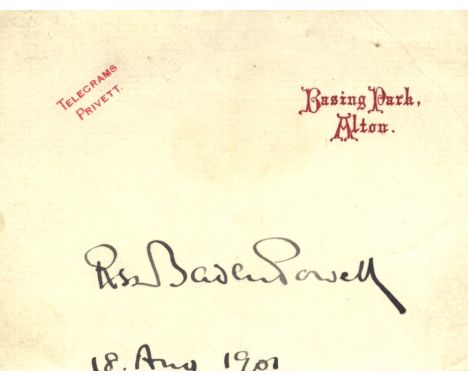 TELEGRAMS
PRIVETT.
Basing Park,
Alton.
RSS Baden Powell
18. Aug 1901